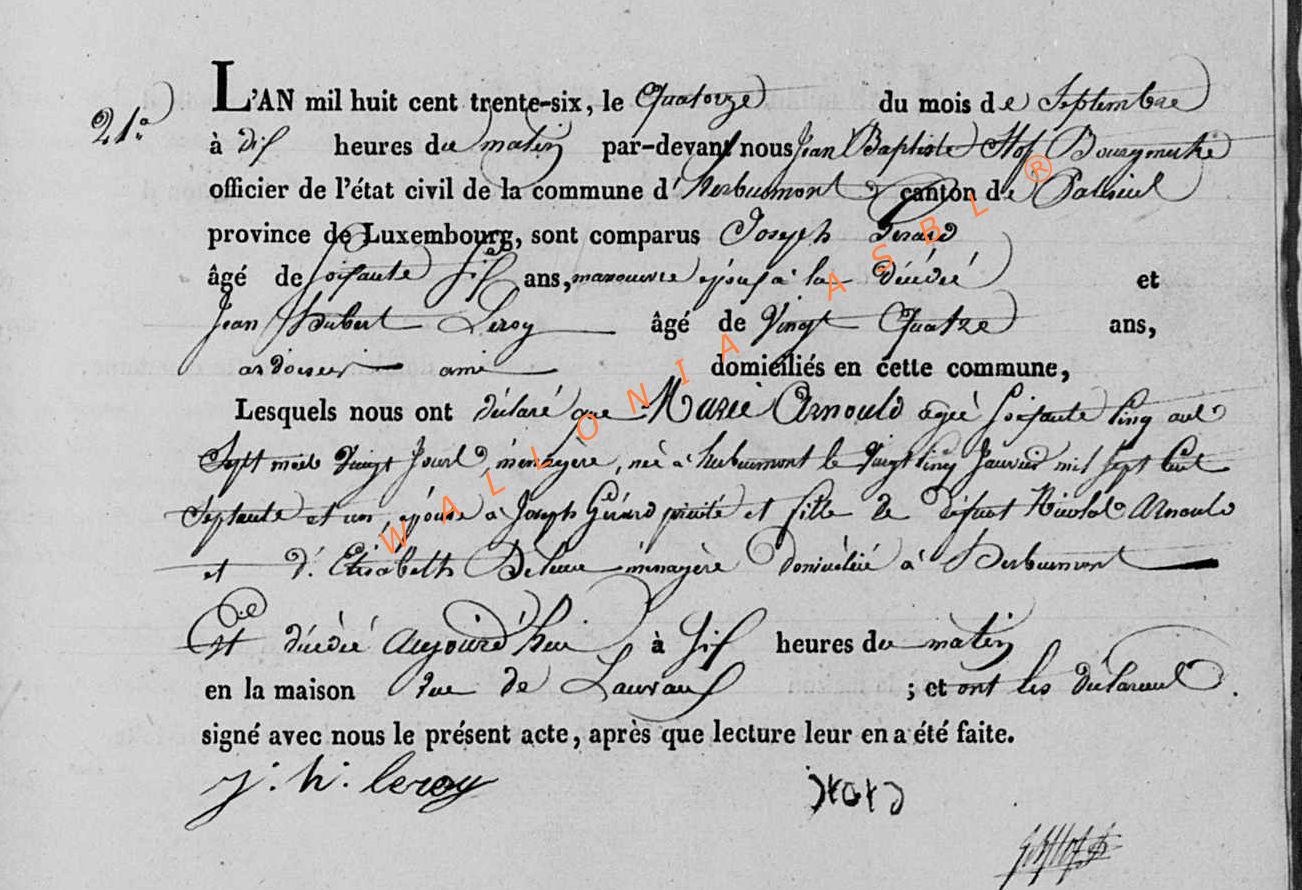 21e
L'AN mil huit cent trente-six, le Quatorze du mois de Septembre
à dix heures du matin par-devant nous Jean Baptiste Hof Bourgmestre
officier de l'état civil de la commune d'herbeumont canton de Paliseul
province de Luxembourg, sont comparus Joseph Gérard
âgé de soixante six ans, manouvre époux à la décédée et
Jean Hubert Leroy âgé de vingt Quatre ans,
ardoisier ami domiciliés en cette commune,
Lesquels nous ont déclaré que Marie Arnould agée soixante cinq ans
Sept mois vingt jours, ménagère, née à herbeumont le vingt cinq Janvier mil sept cent
septante et un, épouse à Joseph Gérard précité et fille de défunt Nicolas Arnould
et d'Elisabeth ménagère domiciliée à Herbeumont
Est décédée aujourd'hui à six heures du matin
en la maison rue de ; et ont les déclarans
signé avec nous le présent acte, après que lecture leur en a été faite.
j. h. leroy
WALLONIA ASBL ®